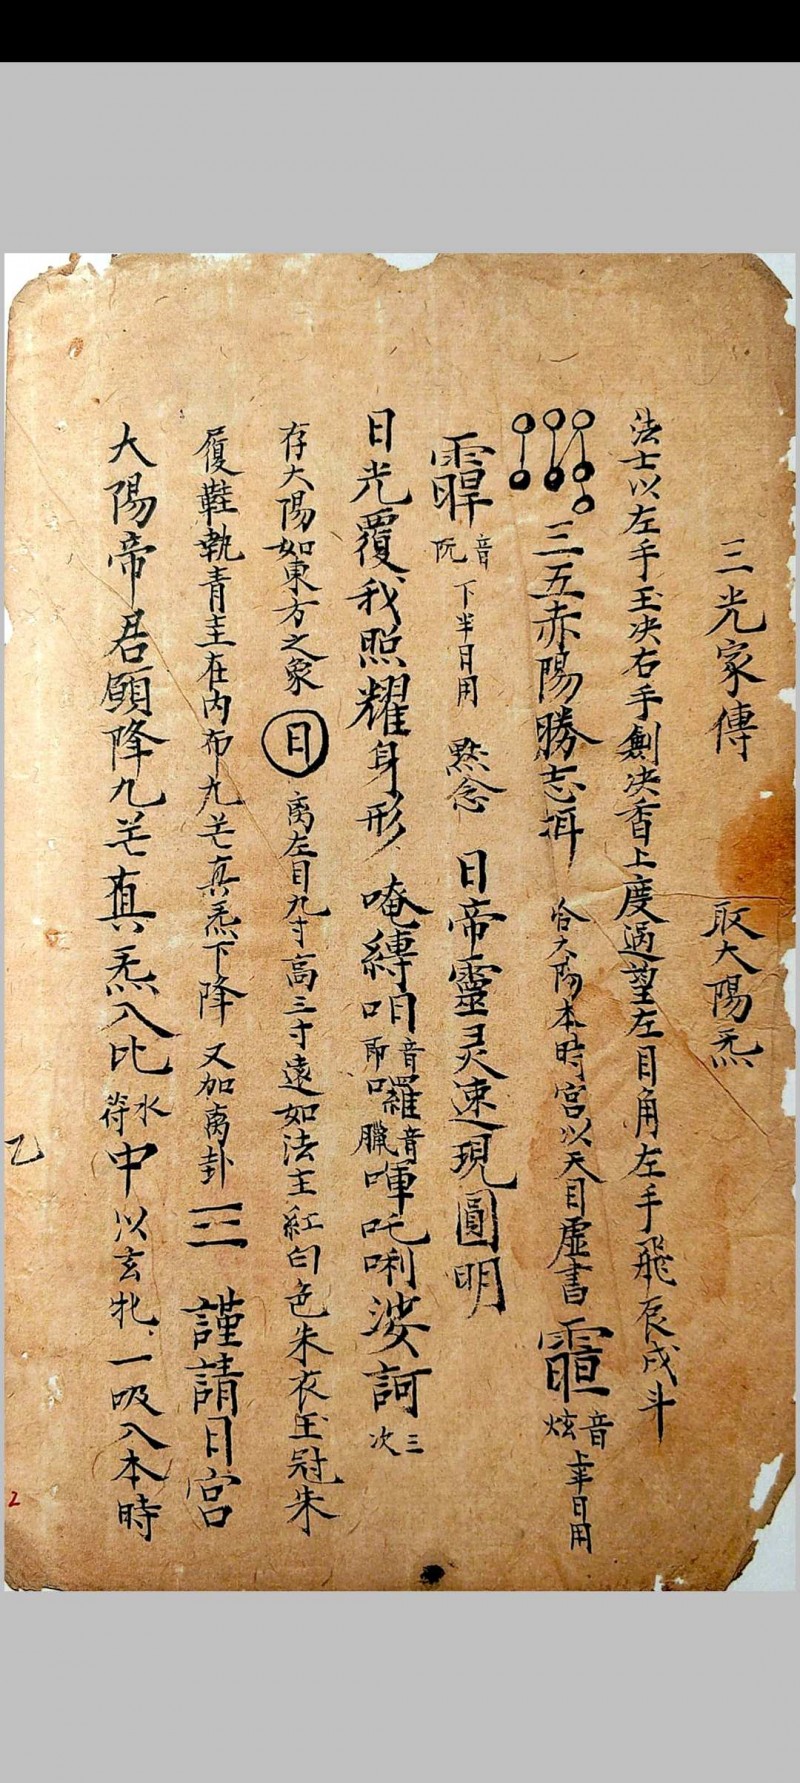 三光家傳　取大陽炁
法士以左手玉决右手劍决香上度過望左目角左手飛辰戌斗
三五赤陽勝志揖 合太陽本時宮以天目虛書 音炫 上半日用
音阮 下半日用 點念 日帝靈灵速現圓明
日光覆我照耀身形 唵縛咱音聑囉音臘㖶吒唎娑訶三次
存大陽如東方之象 日 离左目九寸高三寸遠如法主紅白色朱衣玉冠朱
履鞋執青圭在內布九芒真炁下降 又加离卦 三 謹請日宮
大陽帝君願降九芒真炁入比水符中以玄牝一吸入本時
乙
2